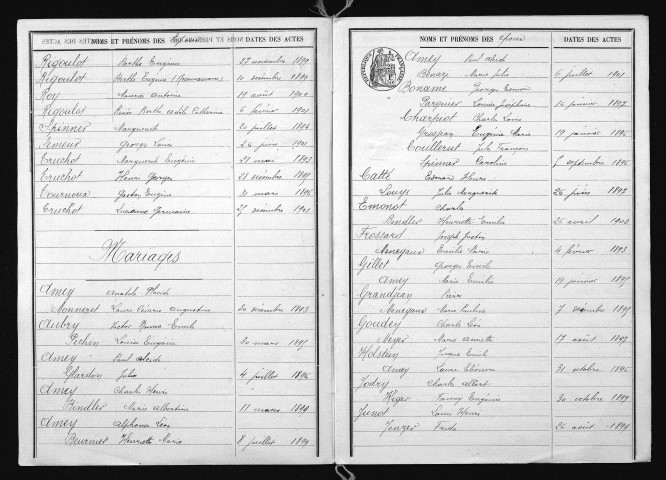 NOMS ET PRÉNOMS DES Epoux DATES DES ACTES
Rigoulot Berthe Eugénie 27 novembre 1899
Rigoulot Berthe Eugénie 10 décembre 1899
Roy Maurice Antoine 19 août 1900
Rigoulot Berthe Adèle Catherine 6 février 1901
Spinner Marguerite 20 juillet 1896
Georges Louis 1901
Truchot Marguerite Eugénie 23 mars 1893
Truchot Henri Georges 28 décembre 1898
Tournoux Gaston Eugène 30 mars 1895
Truchot Suzanne Germaine 25 décembre 1901
Mariages
Amey Anatole Placide
Monneret Laure Césarie Augustine 30 décembre 1893
Aubry Victor Emile
Pichon Louise Eugénie 30 mars 1897
Amey Paul Alcide
Glardon Julia 4 juillet 1896
Amey Charles Henri
Bindler Marie Albertine 11 mars 1899
Amey Alphonse Léon
Beurnier Henriette Marie 8 juillet 1899
NOMS ET PRÉNOMS DES Epoux DATES DES ACTES
Amey Paul Alcide
Benazi Marie Julie 6 juillet 1901
Boname Georges Edmond
Parguier Louise Joséphine 16 janvier 1897
Charpiot Charles Louis
Grosjean Eugénie Marie 19 janvier 1895
Coullerut Jules François
Spinner Caroline 5 septembre 1896
Catté Edmond Henri
Louys Julie Marguerite 26 juin 1897
Emonot Charles
Bindler Henriette Emilie 25 avril 1900
Frossard Joseph Justin
Menegaux Emilie Marie 4 février 1893
Gillet Georges Emile
Amey Marie Emélie 19 janvier 1895
Grandjean Pierre
Menegaux Marie Pauline 7 décembre 1895
Goudey Charles Léon
Meyer Marie Annette 17 août 1897
Holstein Jacques Emile
Amey Laure Eléonore 31 octobre 1895
Jodry Charles Albert
Kiger Fanny Eugénie 30 octobre 1897
Junot Louis Henri
Jenzer Frida 26 août 1899